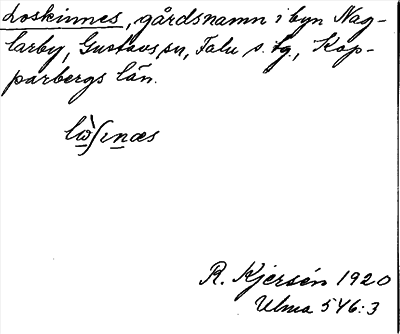 Loskinnes, gårdsnamn i byn Nag-
larby, Gustavs sn, Falu s. tg., Kop-
parbergs län.
lὼʃınæs
R. Kjersén 1920
Ulma 546:3